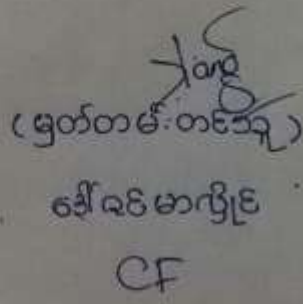 (မှတ်တမ်းတင်သူ)
ဒေါ်ဇင်မာလှိုင်
CF